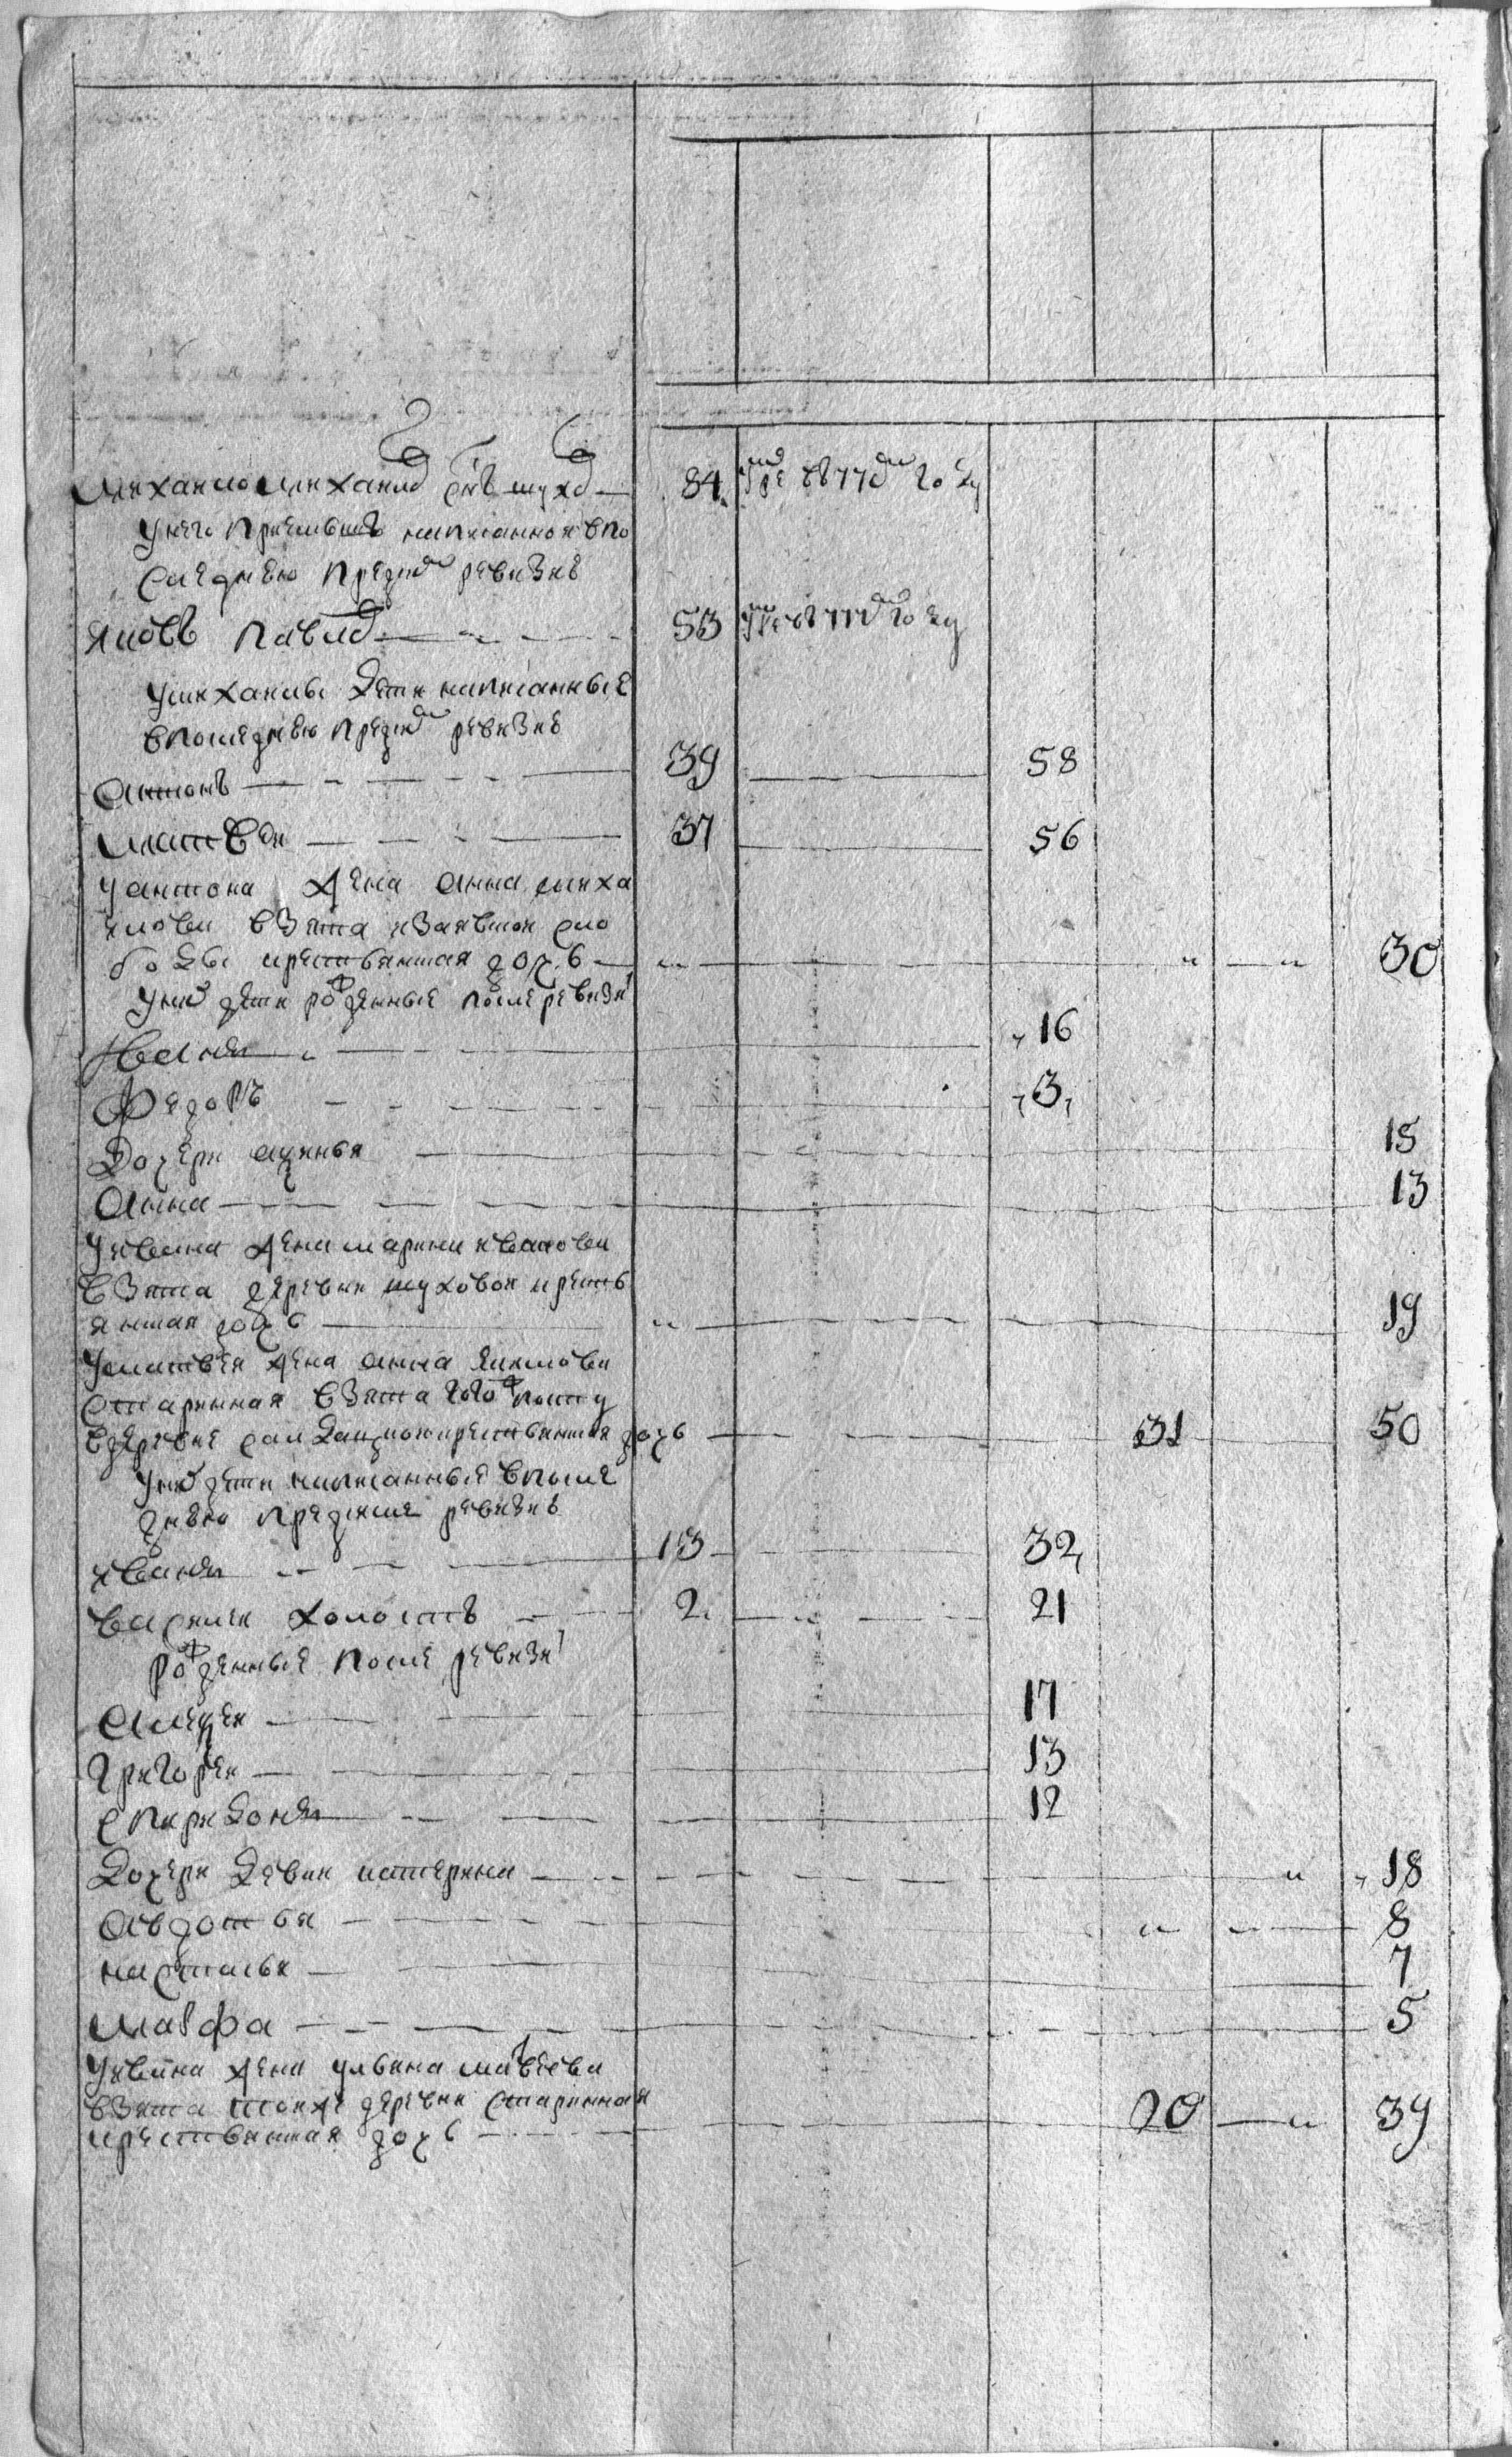 Михаило Михаилов снъ шухов 84 умре въ 77м году
Унего приемышъ написанной впо
следнею пред сем ревизиѣ
Яковъ Павлов 53 умре въ 77м году
Умихаилы дети написанные
впоследнею пред сем ревизиѣ
Антонъ 39 58
Матвеи 37 56
Уантона жена Анна миха
илова взята
крестьянская дочь 30
Уних дети рожденные после ревизи
Иванъ 16
Федоръ 3
Дочери аксинья 15
Анна 13
Уивана жена марина иванова
взята деревни шуховои кресть
янская дочь 19
Уматвея жена анна якимова
старинная взята
вдеревне крестьянская дочь 31 50
Уних дети написанные впосле
днею пред сем ревизиѣ
иванъ 13 32
василеи холостъ 2 21
рожденные после ревизи
Алексеи 17
Григореи 13
спиридонъ 12
Дочери девки катерина 18
Авдотья 8
настасья 7
Марфа 5
Уивана жена ульяна матвеева
взята тоиже деревни старинная
крестьянская дочь 20 39